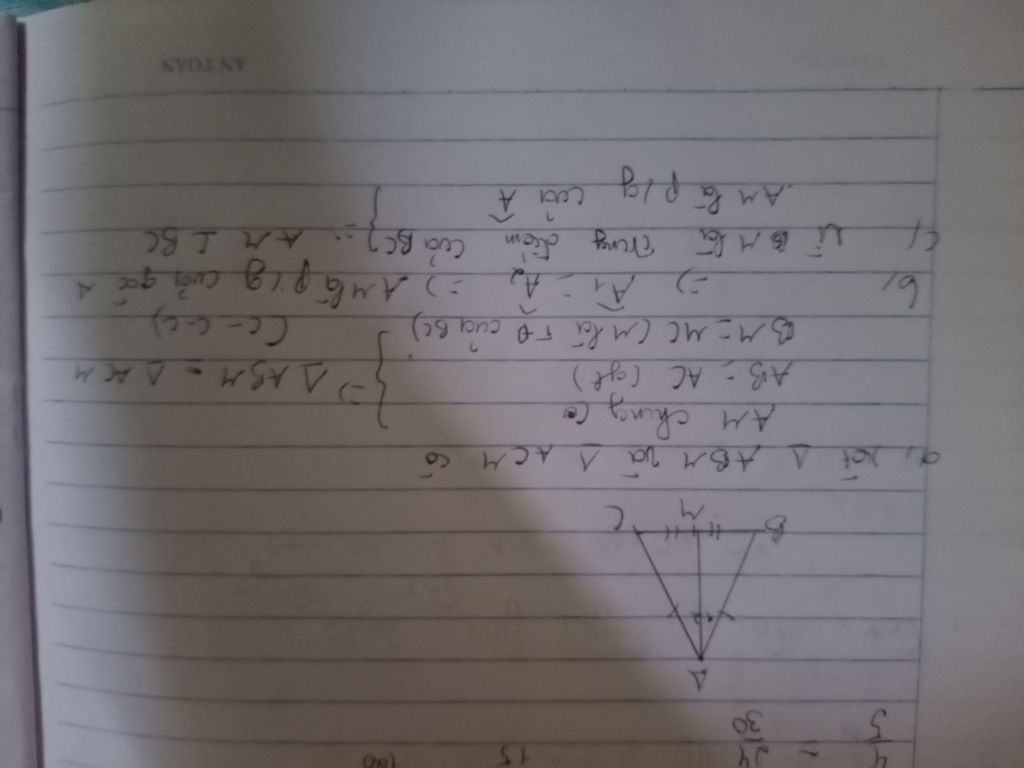 4/5 = 24/30 15 100
A
1 2
B M C
a, xét Δ ABM và Δ ACM có
AM chung
AB = AC (gt)
BM = MC (M là TĐ của BC)
} => Δ ABM = Δ ACM
(c-c-c)
b, => Â1 = Â2 => AM là p/g của góc A
c, Vì M là trung điểm của BC
AM là p/g của Â
} => AM ⊥ BC
AN TOAN